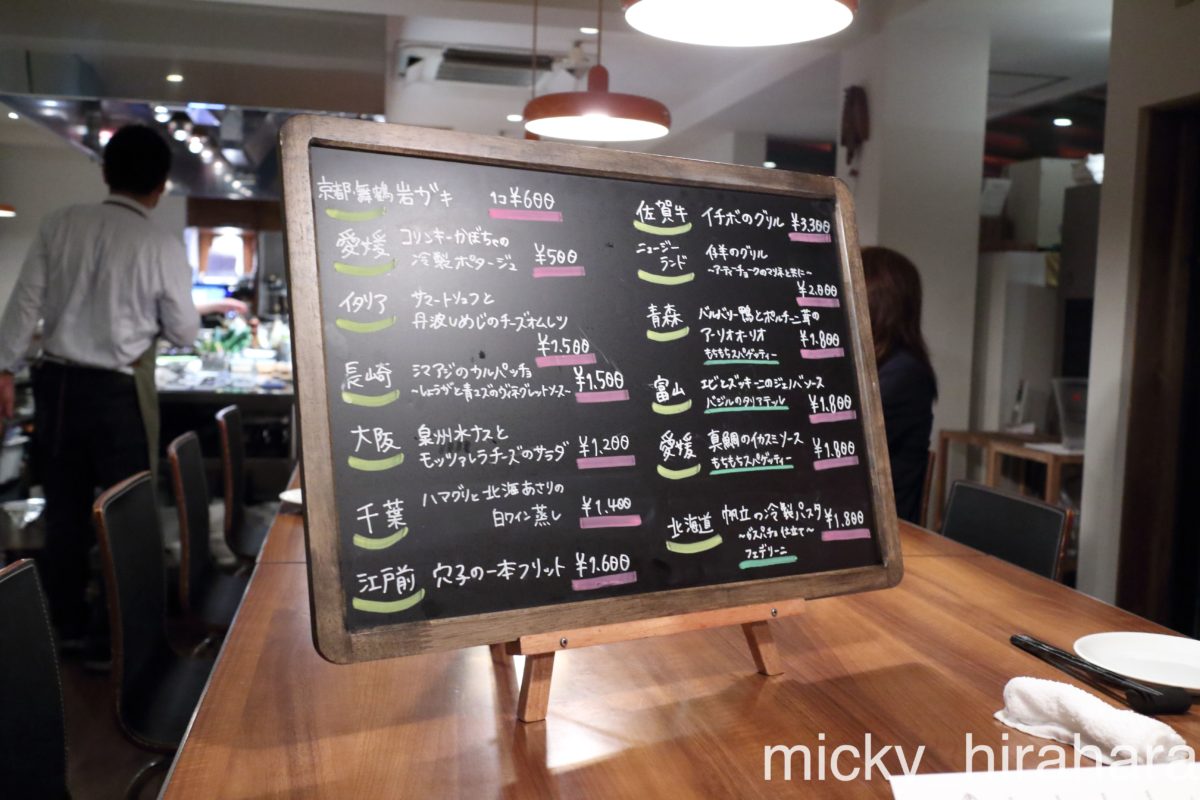 京都・舞鶴 岩ガキ 1コ ¥600
愛媛 コリンキーかぼちゃの
冷製ポタージュ ¥500
イタリア サマートリュフと
丹波しめじのチーズオムレツ
¥1.500
長崎 シマアジのカルパッチョ
~しょうがと青ユズのヴィネグレットソース~ ¥1,500
大阪 泉州水ナスと
モッツァレラチーズのサラダ ¥1,200
千葉 ハマグリと北海あさりの
白ワイン蒸し ¥1.400
江戸前 穴子の一本フリット ¥1.600
佐賀牛 イチボのグリル ¥3,300
ニュージー
ランド 仔羊のグリル
~アーティチョークのマリネと共に~
¥2.800
青森 バルバリー鴨とポルチーニ茸の
アーリオオーリオ ¥1,800
もちもちスパゲッティー
富山 エビとズッキーニのジェノバソース
バジルのタリアテッレ ¥1.800
愛媛 真鯛のイカスミソース ¥1,800
もちもちスパゲッティー
北海道 帆立の冷製パスタ ¥1.800
~ガスパチョ仕立て~
フェデリーニ
micky hirahara